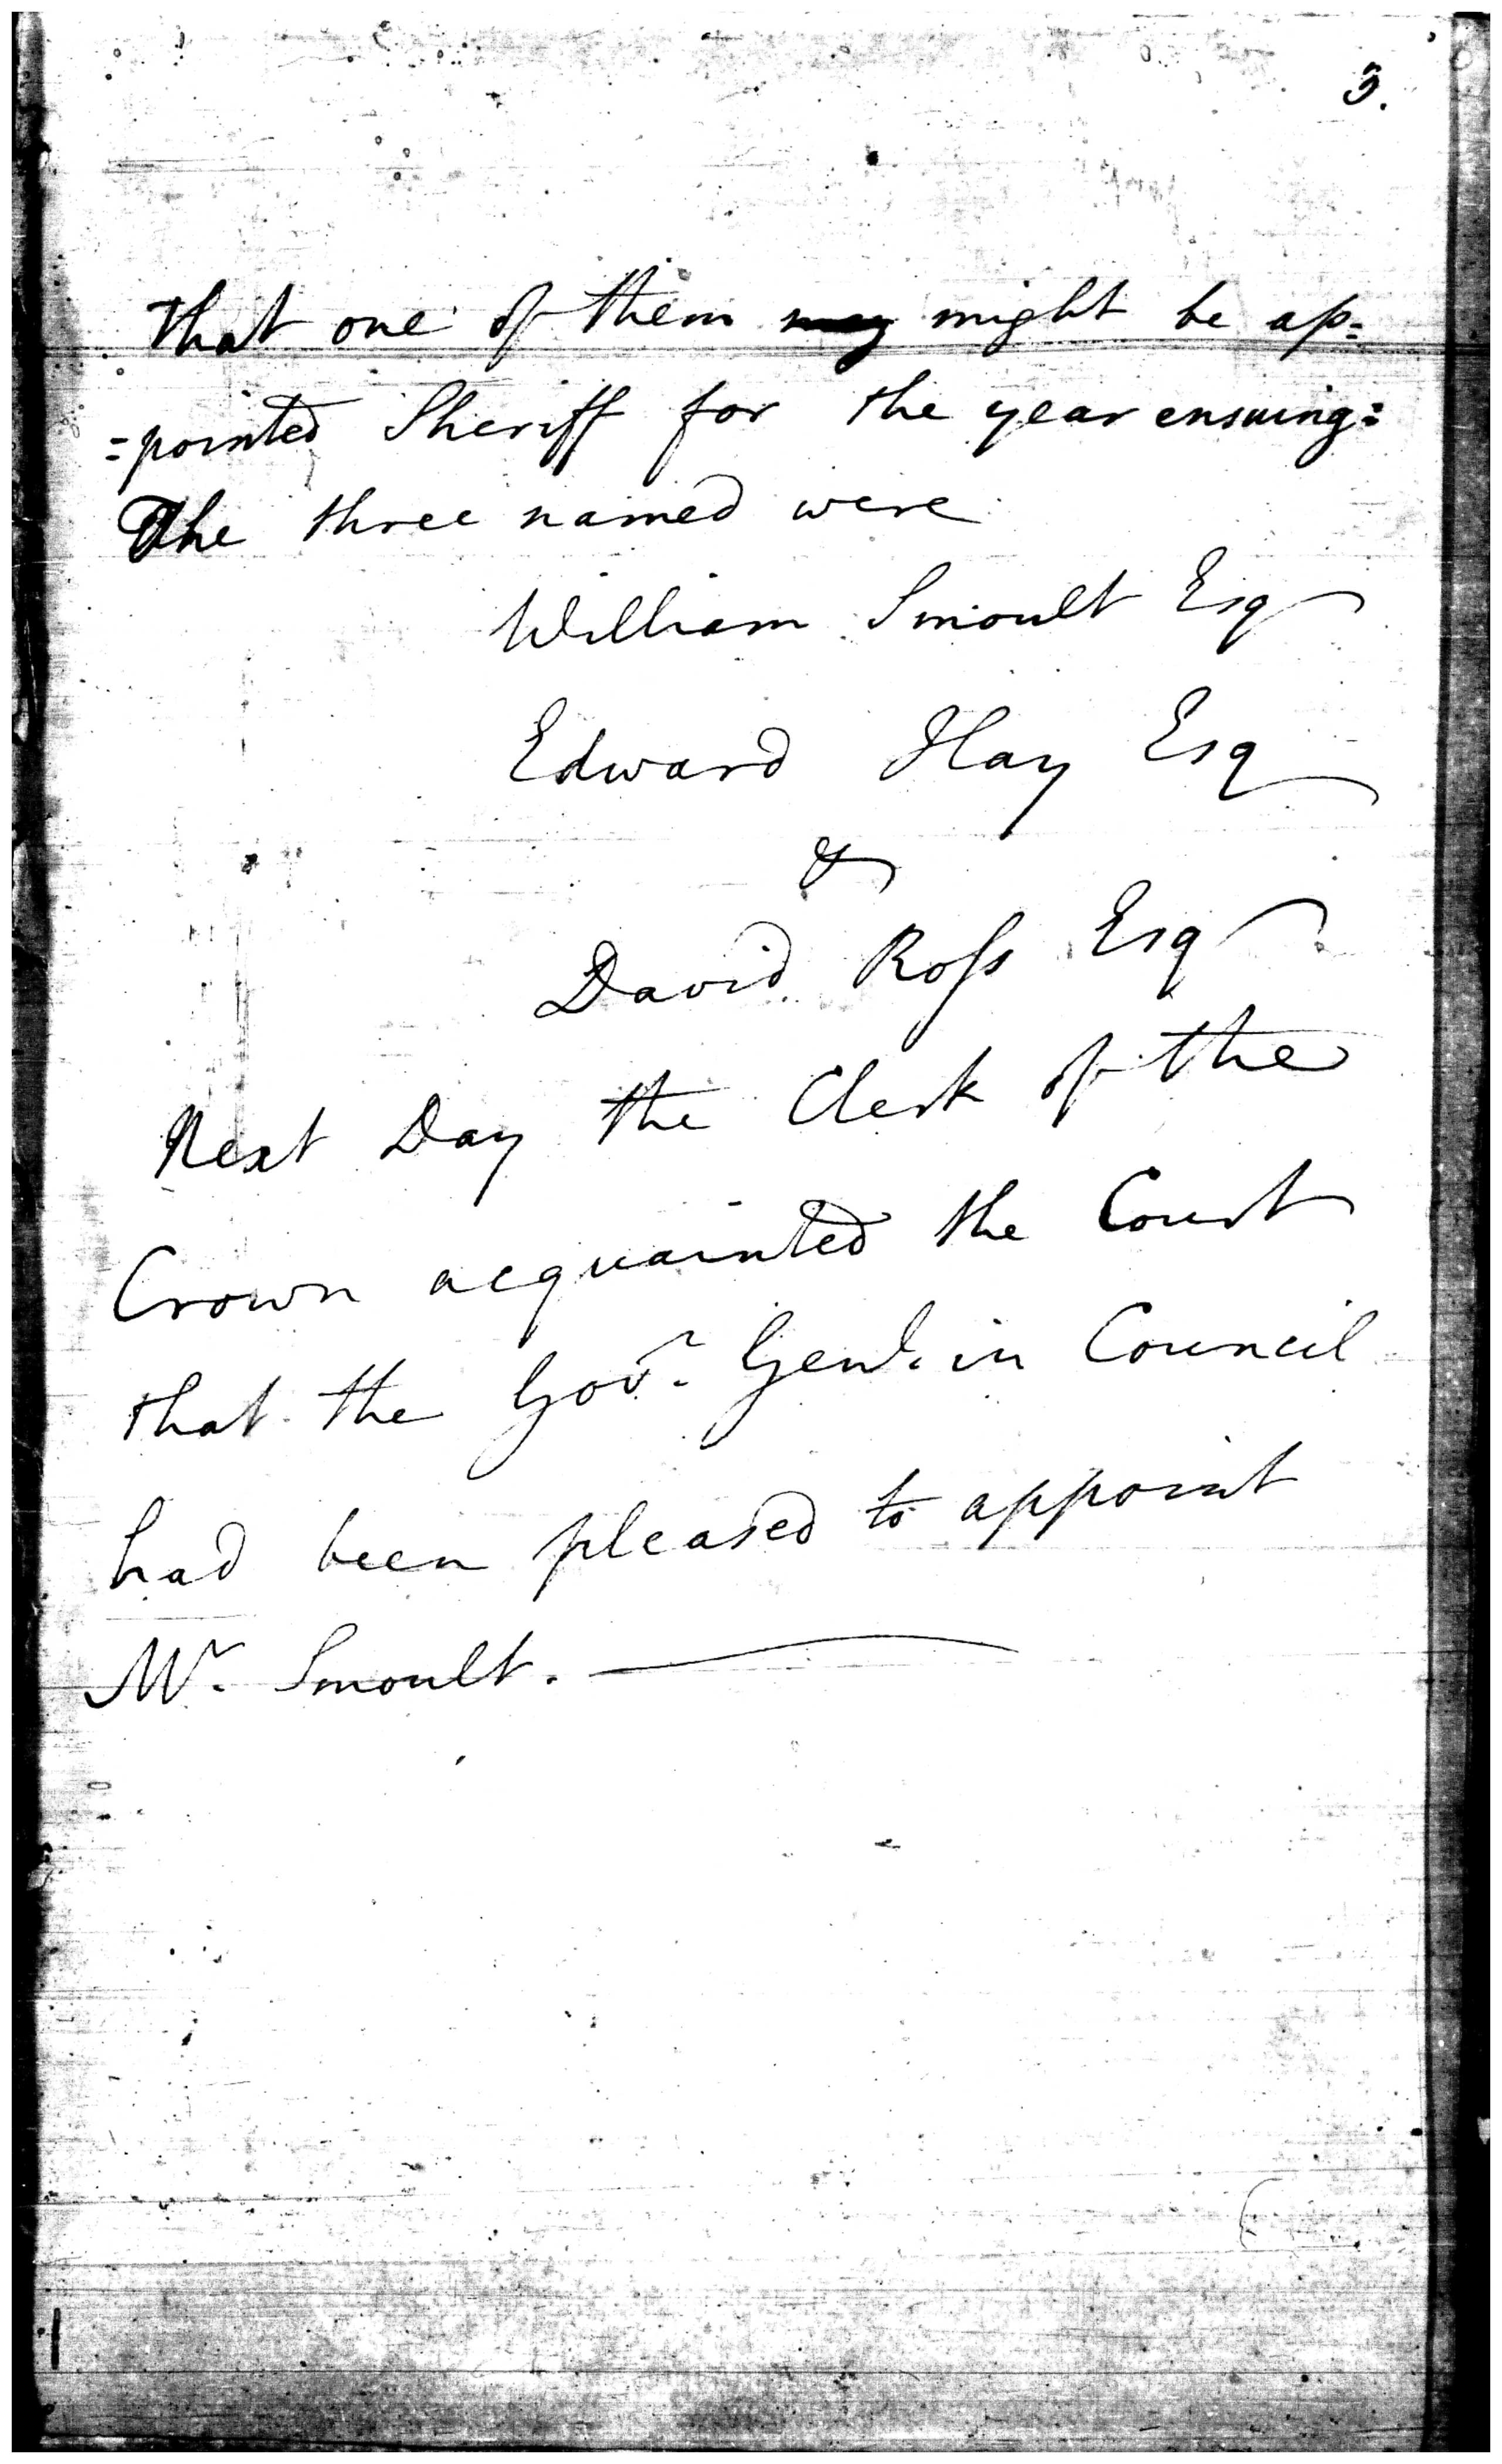 3.
That one of them may might be ap=
=pointed Sheriff for the year ensuing:
The three named were
William Smoult Esq
Edward Hay Esq
&
David Roſs Esq
Next Day the Clerk of the
Crown acquainted the Court
that the Govr. Genl. in Council
had been pleased to appoint
Mr. Smoult.